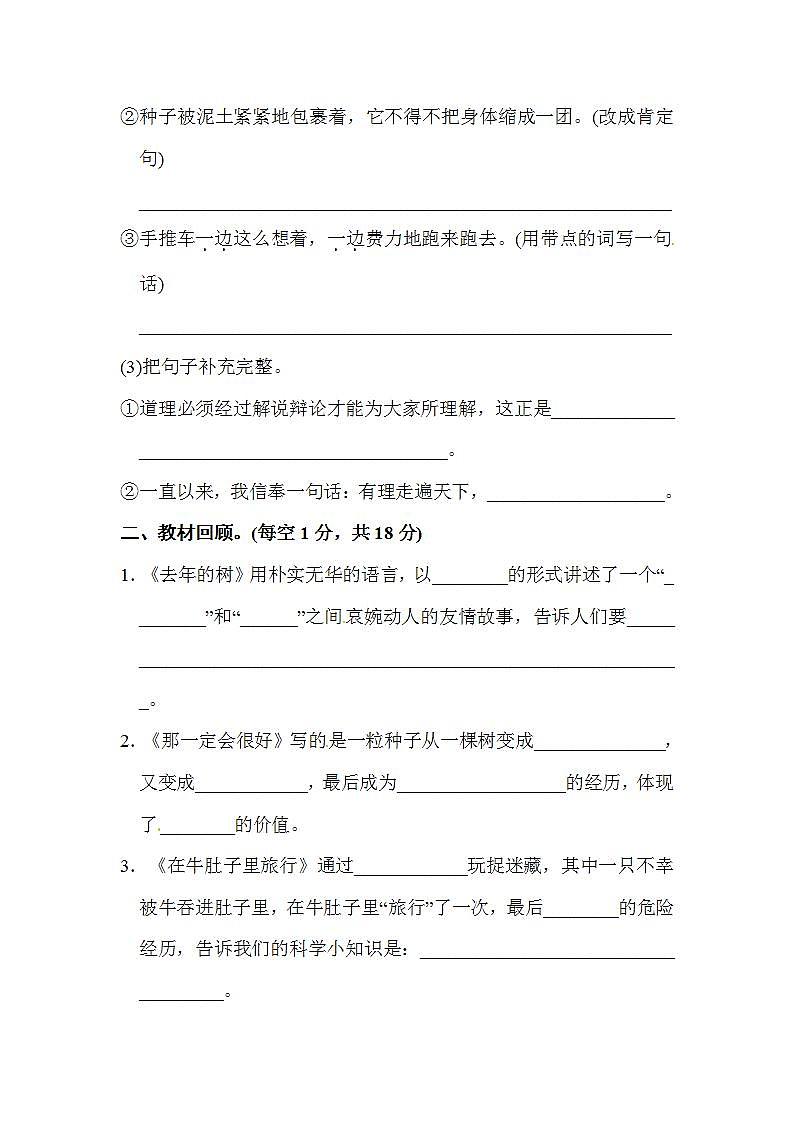 ②种子被泥土紧紧地包裹着，它不得不把身体缩成一团。(改成肯定
句)
________________________________________________________
③手推车一边这么想着，一边费力地跑来跑去。(用带点的词写一句
话)
________________________________________________________
(3)把句子补充完整。
①道理必须经过解说辩论才能为大家所理解，这正是_____________
_________________________________。
②一直以来，我信奉一句话：有理走遍天下，___________________。
二、教材回顾。(每空1分，共18分)
1．《去年的树》用朴实无华的语言，以________的形式讲述了一个“_
_______”和“______”之间哀婉动人的友情故事，告诉人们要_____
_________________________________________________________
_。
2．《那一定会很好》写的是一粒种子从一棵树变成______________，
又变成____________，最后成为__________________的经历，体现
了________的价值。
3．《在牛肚子里旅行》通过____________玩捉迷藏，其中一只不幸
被牛吞进肚子里，在牛肚子里“旅行”了一次，最后________的危险
经历，告诉我们的科学小知识是：___________________________
_________。